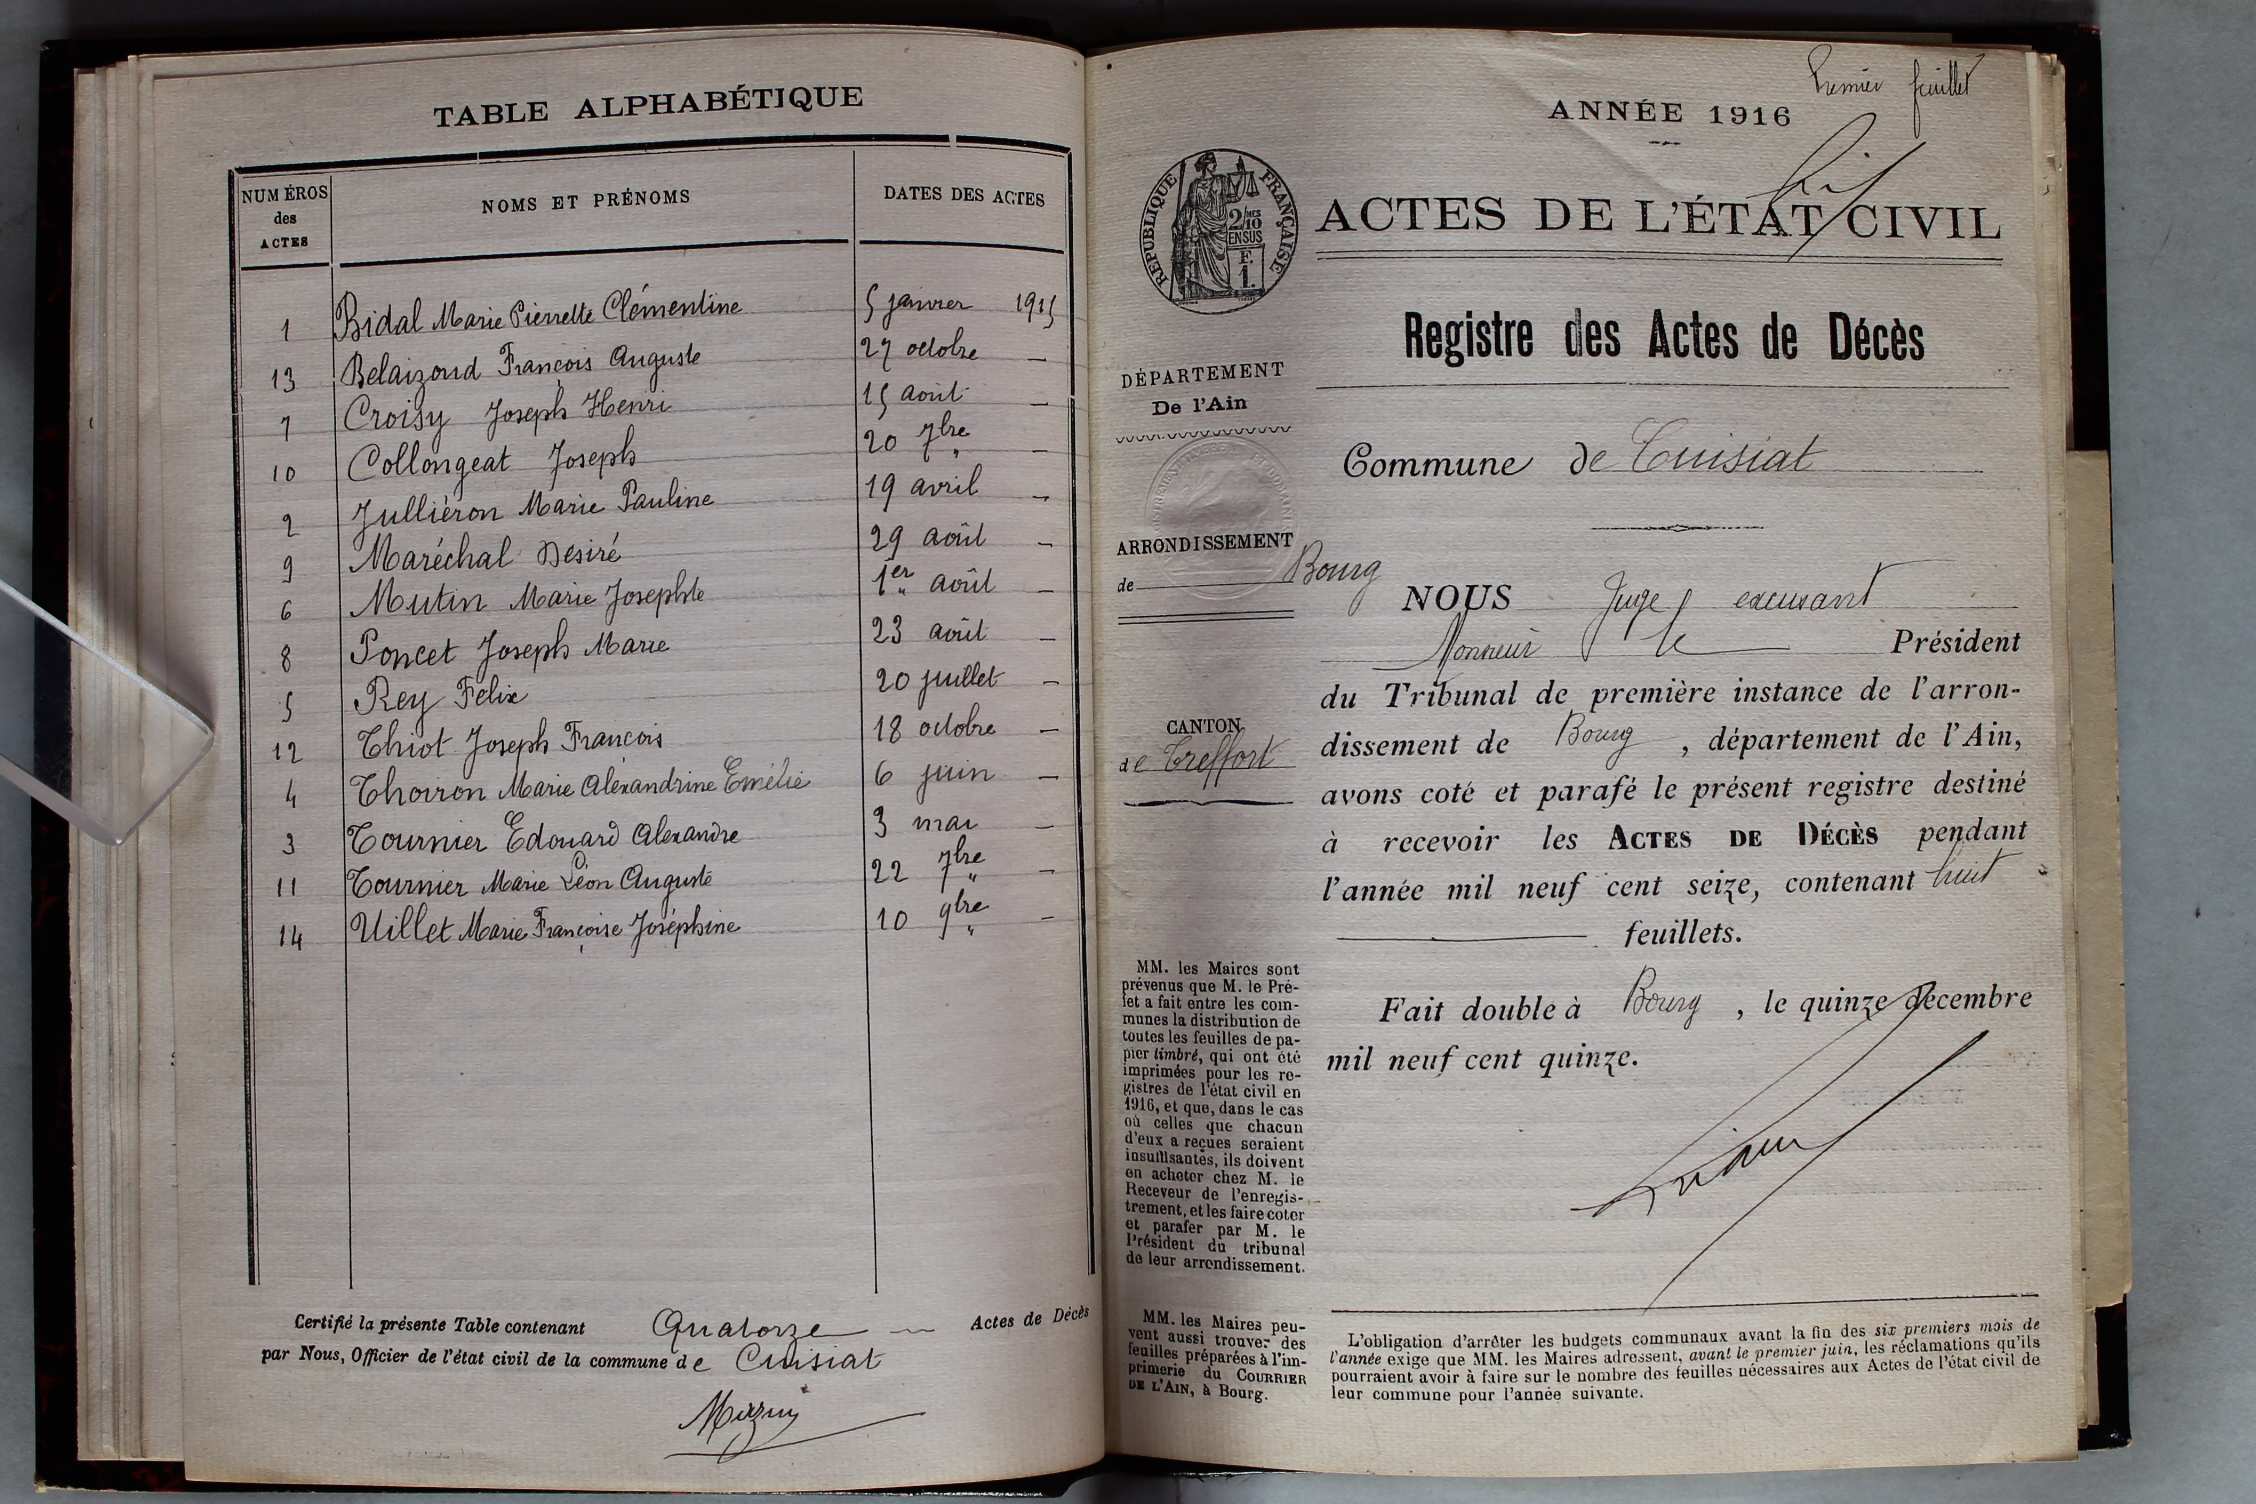 TABLE ALPHABÉTIQUE
NUMÉROS des ACTES
NOMS ET PRÉNOMS
DATES DES ACTES
1 Bidal Marie Pierrette Clémentine 5 janvier 1915
13 Belaizoud François Auguste 27 octobre —
7 Croisy Joseph Henri 15 août —
10 Collongeat Joseph 20 7bre —
2 Julliéron Marie Pauline 19 avril —
9 Maréchal Desiré 29 août —
6 Mutin Marie Josephte 1er août —
8 Poncet Joseph Marie 23 août —
5 Rey Felix 20 juillet —
12 Thiot Joseph François 18 octobre —
4 Thoiron Marie Alexandrine Emélie 6 juin —
3 Tournier Edouard Alexandre 3 mai —
11 Tournier Marie Léon Auguste 22 7bre —
14 Uillet Marie Françoise Joséphine 10 9bre —
Certifié la présente Table contenant Quatorze — Actes de Décès
par Nous, Officier de l'état civil de la commune de Cuisiat
Premier feuillet
ANNÉE 1916
RÉPUBLIQUE FRANÇAISE
2/10MES
EN SUS
F.
1.
ACTES DE L'ÉTAT CIVIL
Registre des Actes de Décès
DÉPARTEMENT
De l'Ain
Commune de Cuisiat
ARRONDISSEMENT
de Bourg
NOUS Juge excusant
Monsieur le Président
du Tribunal de première instance de l'arron-
dissement de Bourg, département de l'Ain,
CANTON
de Treffort
avons coté et parafé le présent registre destiné
à recevoir les ACTES DE DÉCÈS pendant
l'année mil neuf cent seize, contenant huit
feuillets.
Fait double à Bourg, le quinze décembre
mil neuf cent quinze.
MM. les Maires sont
prévenus que M. le Pré-
fet a fait entre les com-
munes la distribution de
toutes les feuilles de pa-
pier timbré, qui ont été
imprimées pour les re-
gistres de l'état civil en
1916, et que, dans le cas
où celles que chacun
d'eux a reçues seraient
insuffisantes, ils doivent
en acheter chez M. le
Receveur de l'enregis-
trement, et les faire coter
et parafer par M. le
Président du tribunal
de leur arrondissement.
MM. les Maires peu-
vent aussi trouver des
feuilles préparées à l'im-
primerie du COURRIER
DE L'AIN, à Bourg.
L'obligation d'arrêter les budgets communaux avant la fin des six premiers mois de
l'année exige que MM. les Maires adressent, avant le premier juin, les réclamations qu'ils
pourraient avoir à faire sur le nombre des feuilles nécessaires aux Actes de l'état civil de
leur commune pour l'année suivante.